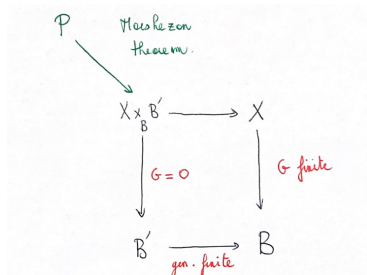 P Moishezon
theorem.
X ×_B B' X
G = 0 G finite
B' B
gen. finite